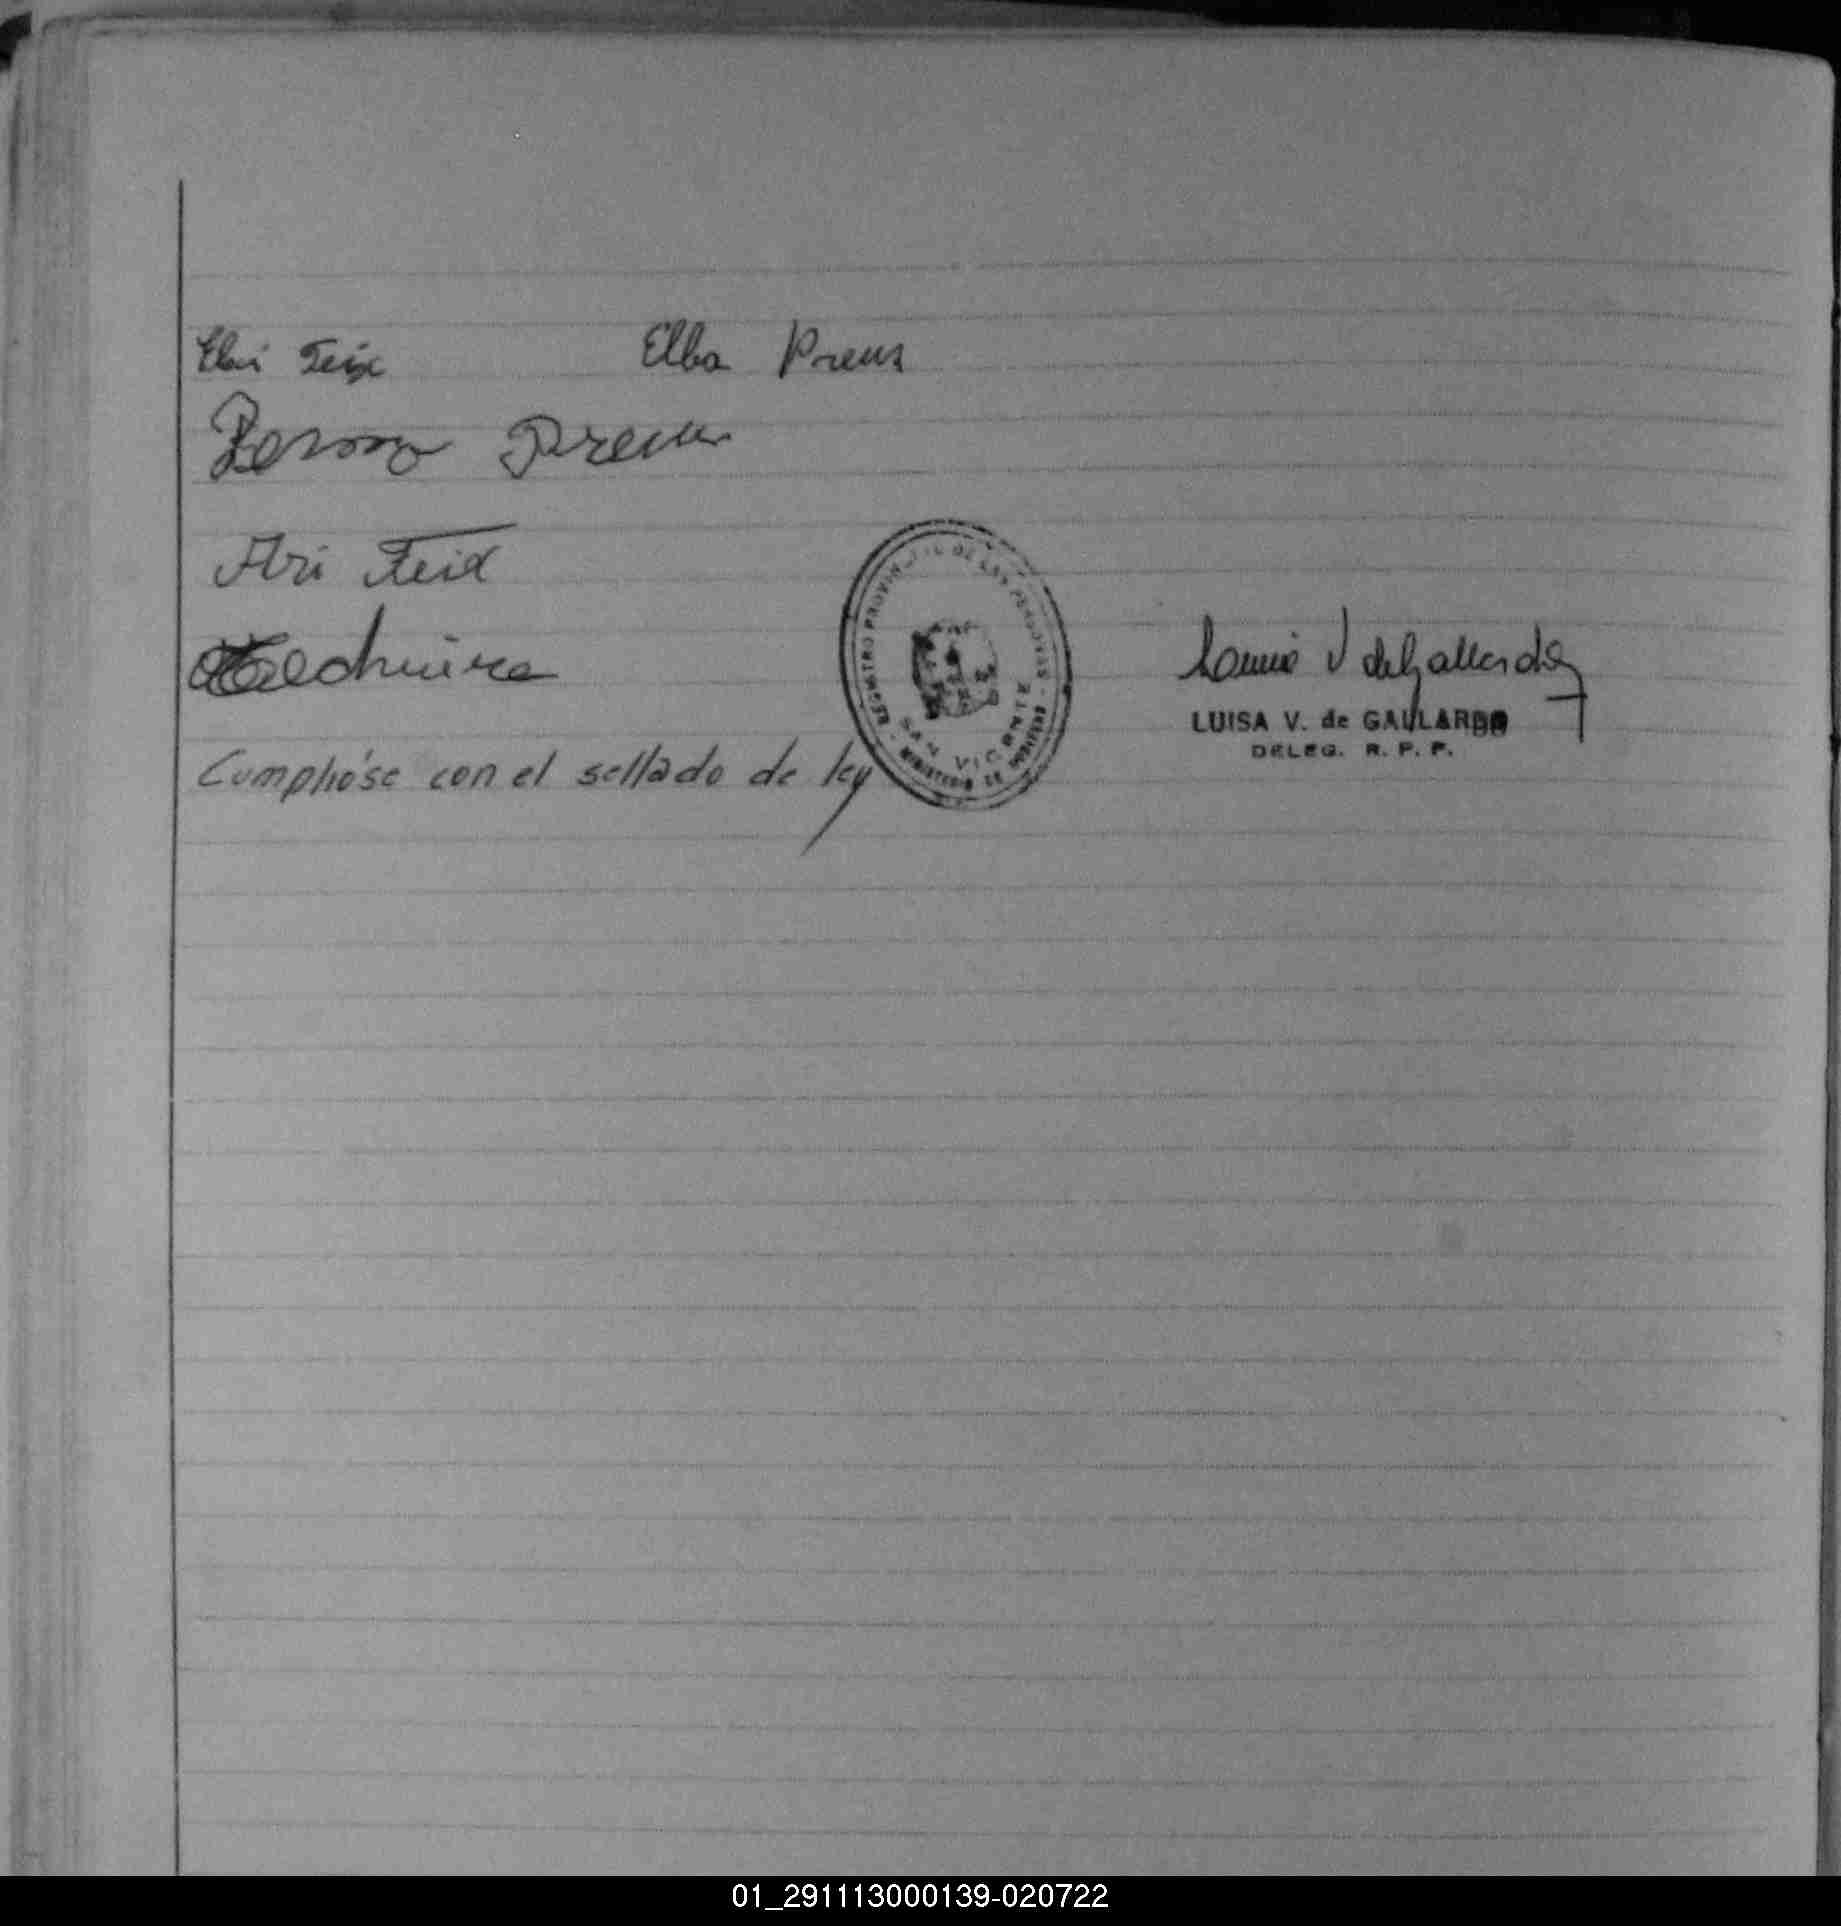 Elvi Feix Elba Preus
Preus
Ari Feix
REGISTRO PROVINCIAL DE LAS PERSONAS
SAN VICENTE
MINISTERIO DE GOBIERNO
V de Gallardo
LUISA V. de GALLARDO
DELEG. R. P. P.
Cumplióse con el sellado de ley
01_291113000139-020722